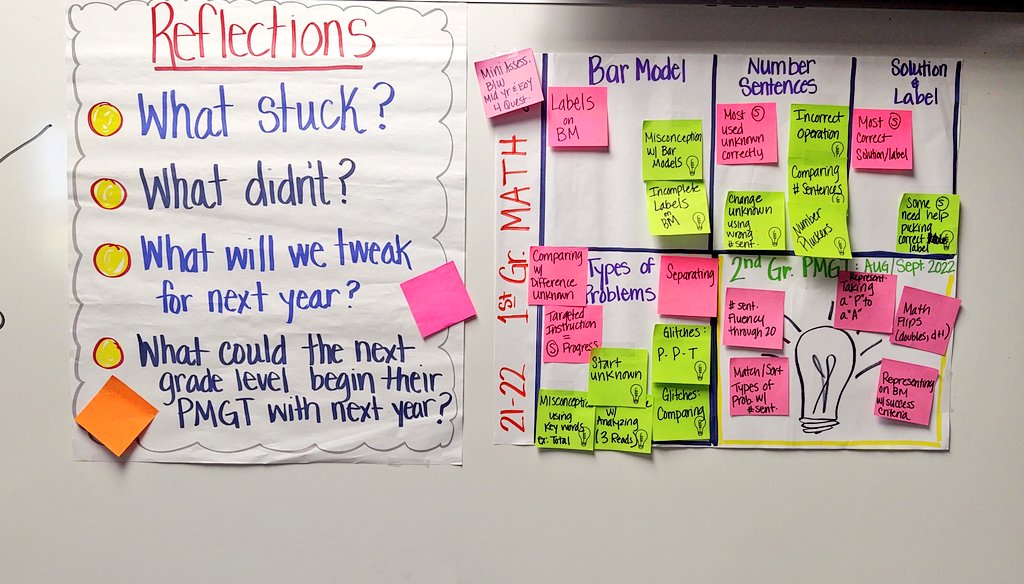 Reflections
What stuck?
What didn't?
What will we tweak
for next year?
What could the next
grade level begin their
PMGT with next year?
Mini Assess.
B/W
Mid yr & EOY
4 Quest.
21-22 1st Gr. MATH
Bar Model
Labels
on
BM
Misconception
w/ Bar
Models
Incomplete
Labels
on
BM
Number
Sentences
Most S
used
unknown
correctly
Incorrect
operation
Comparing
# Sentences
Number
Pluckers
Change
unknown
using
wrong
#sent.
Solution
&
Label
Most S
Correct
Solution/label
Some S
need help
picking
correct
label
Types of
Problems
Comparing
w/
Difference
unknown
Separating
Targeted
Instruction
=
S Progress
Start
unknown
Glitches:
P-P-T
Glitches:
Comparing
Misconcept
using
Key words
ex: Total
w/
Analyzing
(3 Reads)
2nd Gr. PMG : AUG/Sept. 2022
# sent.
Fluency
through 20
Match/Sort
Types of
Prob. w/
#sent.
Represent.
Taking
a "P" to
a "A"
Math
Flips
(doubles, d+1)
Representing
on BM
w/ success
criteria